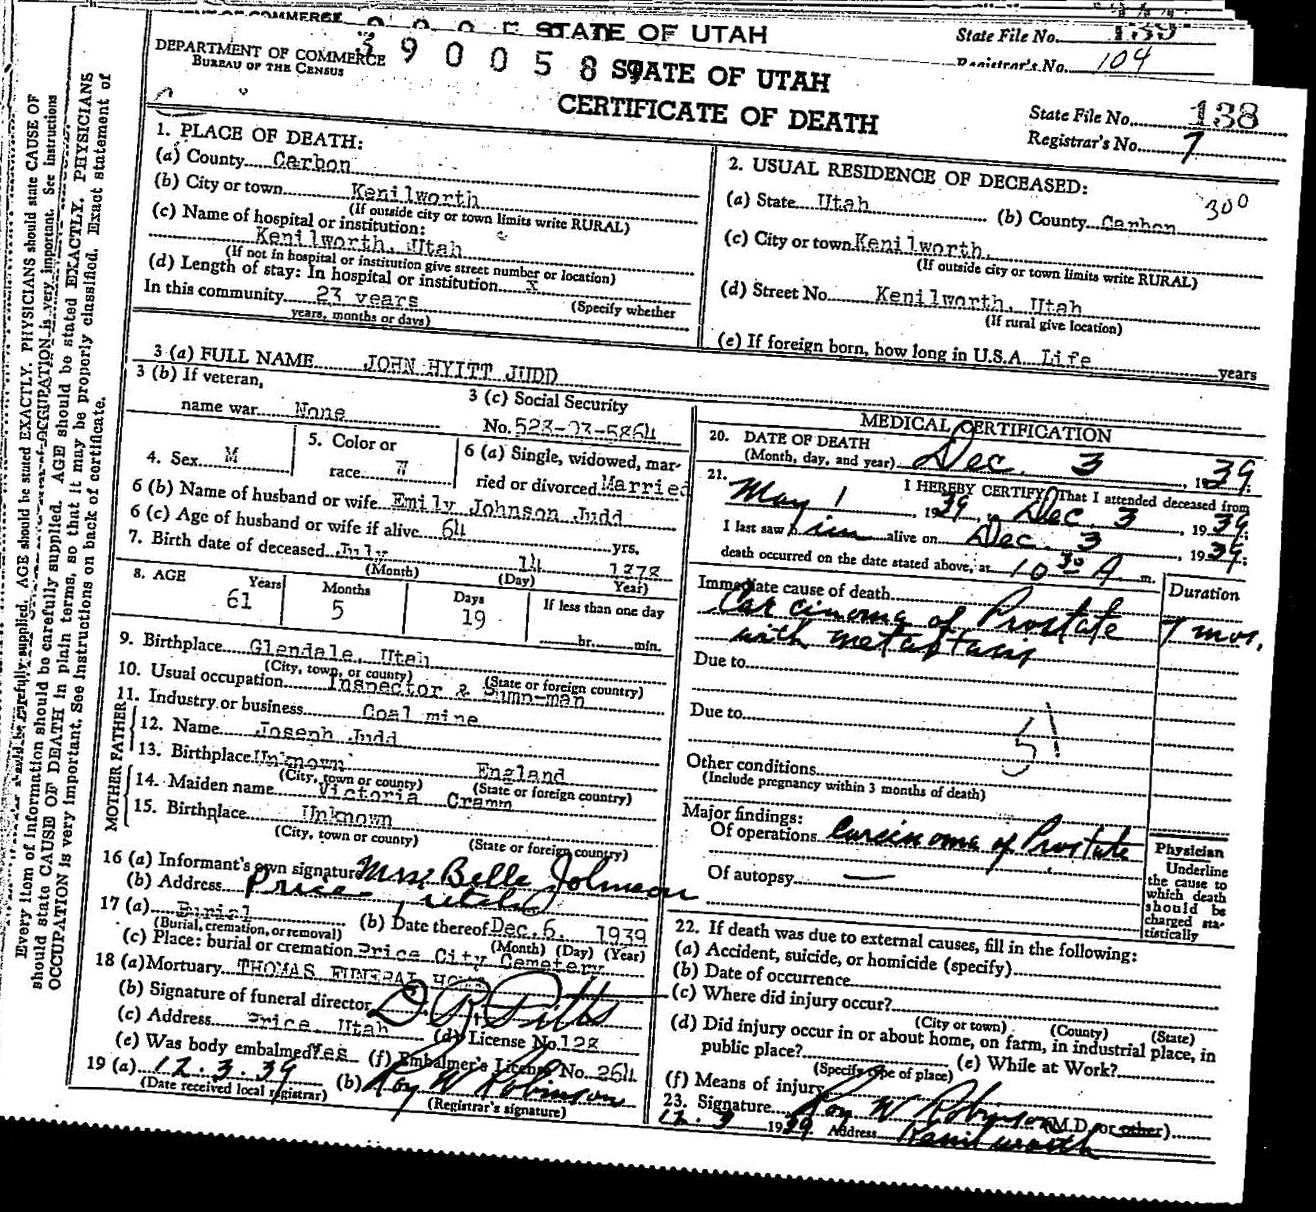 STATE OF UTAH
State File No. 139
Registrar's No. 104
DEPARTMENT OF COMMERCE
BUREAU OF THE CENSUS
390058
STATE OF UTAH
CERTIFICATE OF DEATH
State File No. 138
Registrar's No. 7
1. PLACE OF DEATH:
(a) County Carbon
(b) City or town Kenilworth
(If outside city or town limits write RURAL)
(c) Name of hospital or institution:
Kenilworth, Utah
(If not in hospital or institution give street number or location)
(d) Length of stay: In hospital or institution x
(Specify whether
In this community 23 years
years, months or days)
2. USUAL RESIDENCE OF DECEASED:
300
(a) State Utah (b) County Carbon
(c) City or town Kenilworth,
(If outside city or town limits write RURAL)
(d) Street No. Kenilworth, Utah
(If rural give location)
(e) If foreign born, how long in U.S.A. Life years
3 (a) FULL NAME JOHN HYITT JUDD
3 (b) If veteran,
name war None
3 (c) Social Security
No. 528-03-5864
4. Sex M
5. Color or
race W
6 (a) Single, widowed, mar-
ried or divorced Married
6 (b) Name of husband or wife Emily Johnson Judd
6 (c) Age of husband or wife if alive 64 yrs.
7. Birth date of deceased July 14 1878
(Month) (Day) Year)
8. AGE
Years 61
Months 5
Days 19
If less than one day
hr. min.
9. Birthplace Glendale, Utah
(City, town, or county) (State or foreign country)
10. Usual occupation Inspector & Pump-man
11. Industry or business Coal mine
FATHER
12. Name Joseph Judd
13. Birthplace Unknown England
(City, town or county) (State or foreign country)
MOTHER
14. Maiden name Victoria Cramm
15. Birthplace Unknown
(City, town or county) (State or foreign country)
16 (a) Informant's own signature Mrs. Belle Johnson
(b) Address Price, Utah
17 (a) Burial (b) Date thereof Dec. 6, 1939
(Burial, cremation, or removal) (Month) (Day) (Year)
(c) Place: burial or cremation Price City Cemetery
18 (a) Mortuary THOMAS FUNERAL HOME
(b) Signature of funeral director
(c) Address Price, Utah (d) License No. 128
(e) Was body embalmed Yes (f) Embalmer's License No. 264
19 (a) 12.3.39 (b) Roy W Robinson
(Date received local registrar) (Registrar's signature)
MEDICAL CERTIFICATION
20. DATE OF DEATH
(Month, day, and year) Dec. 3, 1939
21. I HEREBY CERTIFY, That I attended deceased from
May 1, 1939, Dec. 3 1939
I last saw him alive on Dec. 3, 1939;
death occurred on the date stated above, at 10 30 A m.
Immediate cause of death Duration
Carcinoma of Prostate 7 mos.
with metastasis
Due to
Due to
51
Other conditions
(Include pregnancy within 3 months of death)
Major findings:
Of operations Carcinoma of Prostate
Of autopsy —
Physician
Underline
the cause to
which death
should be
charged sta-
tistically
22. If death was due to external causes, fill in the following:
(a) Accident, suicide, or homicide (specify)
(b) Date of occurrence
(c) Where did injury occur?
(City or town) (County) (State)
(d) Did injury occur in or about home, on farm, in industrial place, in
public place? (e) While at Work?
(Specify type of place)
(f) Means of injury
23. Signature Roy W Robinson (M.D. or other)
12. 3 1939 Address Kenilworth
Every item of information should be carefully supplied. AGE should be stated EXACTLY. PHYSICIANS
should state CAUSE OF DEATH in plain terms, so that it may be properly classified. Exact statement of
OCCUPATION is very important. See instructions on back of certificate.